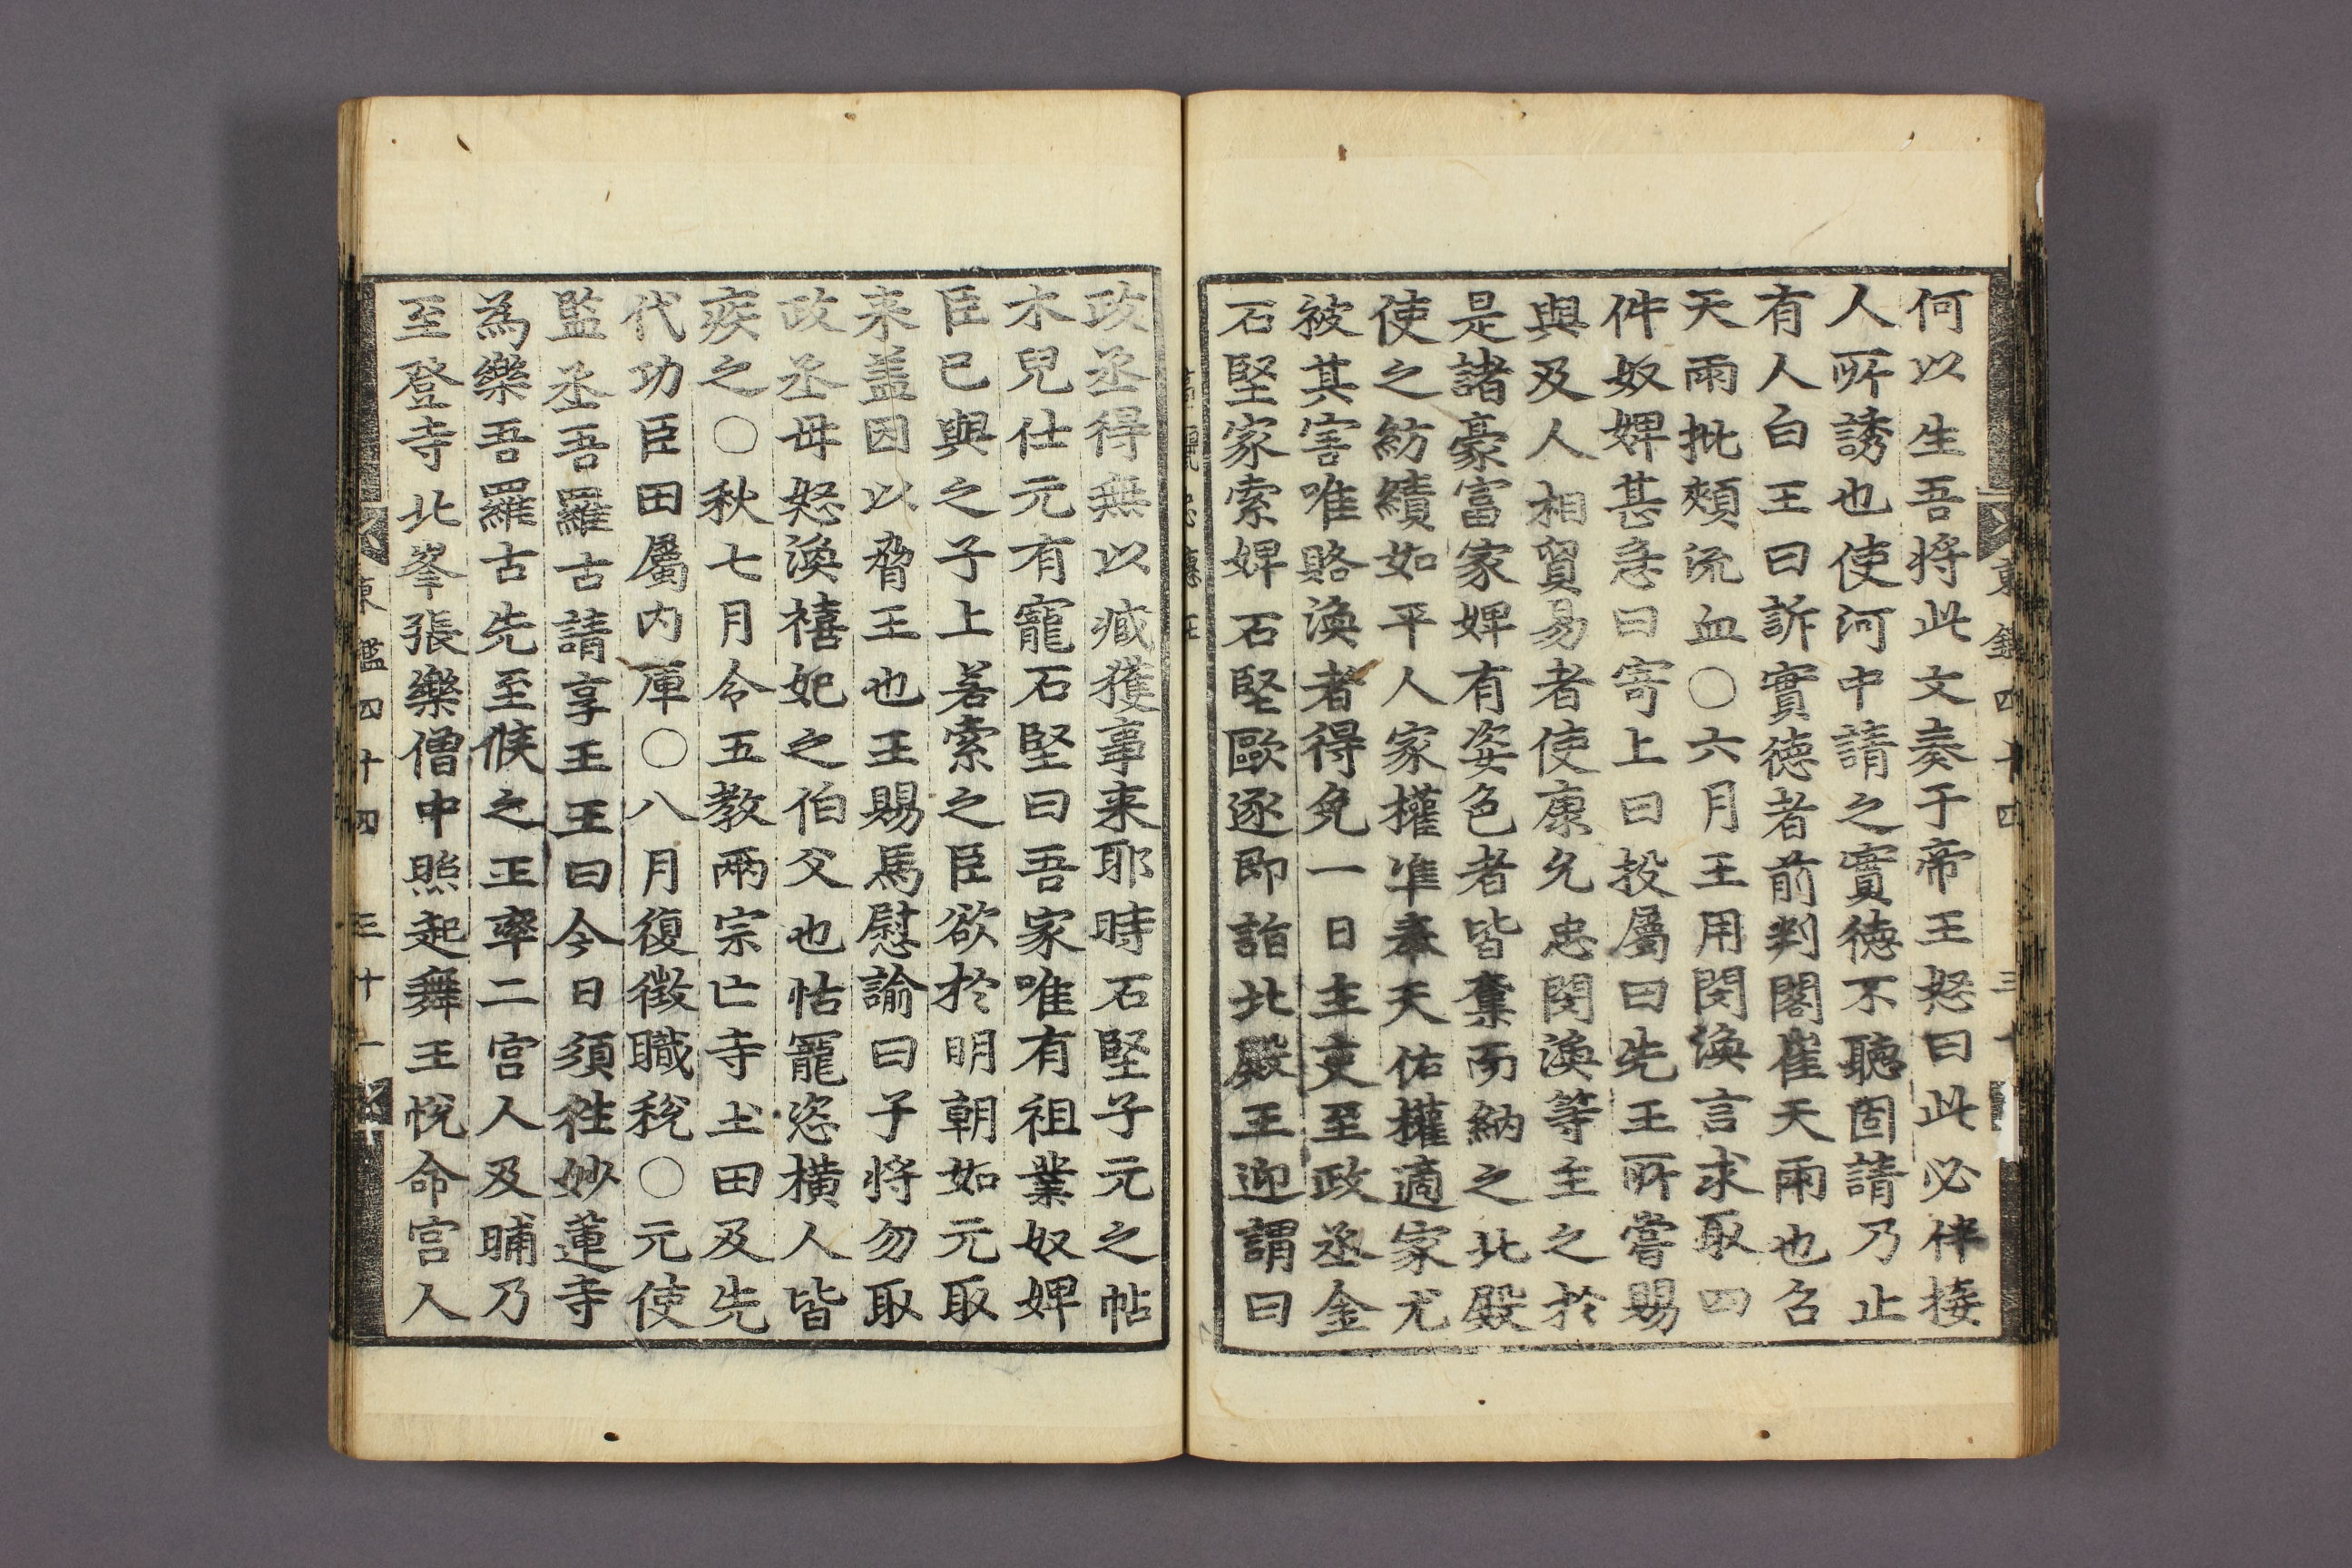 何以生吾将此文奏于帝王怒曰此必伴接
人所誘也使河中請之實德不聽固請乃止
有人白王曰訴實德者前判閣崔天雨也召
天雨批頰流血○六月王用閔渙言求取四
件奴婢甚急曰寄上曰投屬曰先王所嘗賜
與及人相貿易者使康允忠閔渙等主之於
是諸豪富家婢有姿色者皆奪而納之北殿
使之紡績如平人家權準奉天佑權適家尤
被其害唯賂渙者得免一日主吏至政丞金
石堅家索婢石堅歐逐即詣北殿王迎謂曰
東鑑四十四 三十
政丞得無以臧獲事来耶時石堅子元之帖
木兒仕元有寵石堅曰吾家唯有祖業奴婢
臣已與之子上若索之臣欲於明朝如元取
来盖因以脅王也王賜馬慰諭曰子將勿取
政丞毋怒渙禧妃之伯父也怙寵恣橫人皆
疾之○秋七月令五教兩宗亡寺土田及先
代功臣田屬内庫○八月復徵職稅○元使
監丞吾羅古請享王王曰今日須徃妙蓮寺
為樂吾羅古先至候之王率二宫人及晡乃
至登寺北峯張樂僧中照起舞王悅命宫人
東鑑四十四 三十一